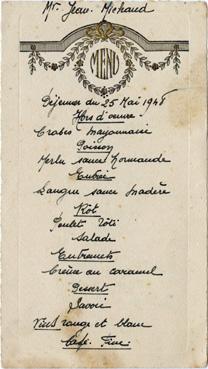 Mr Jean Michaud
MENU
Déjeuner du 25 Mai 1948
Hors d'oeuvre
Crabes Mayonnaise
Poisson
Merlu sauce Normande
Entrée
Langue sauce Madère
Rôt
Poulet rôti
Salade
Entremets
Crème au caramel
Dessert
Savoie
Vins rouge et blanc
Café. Fine